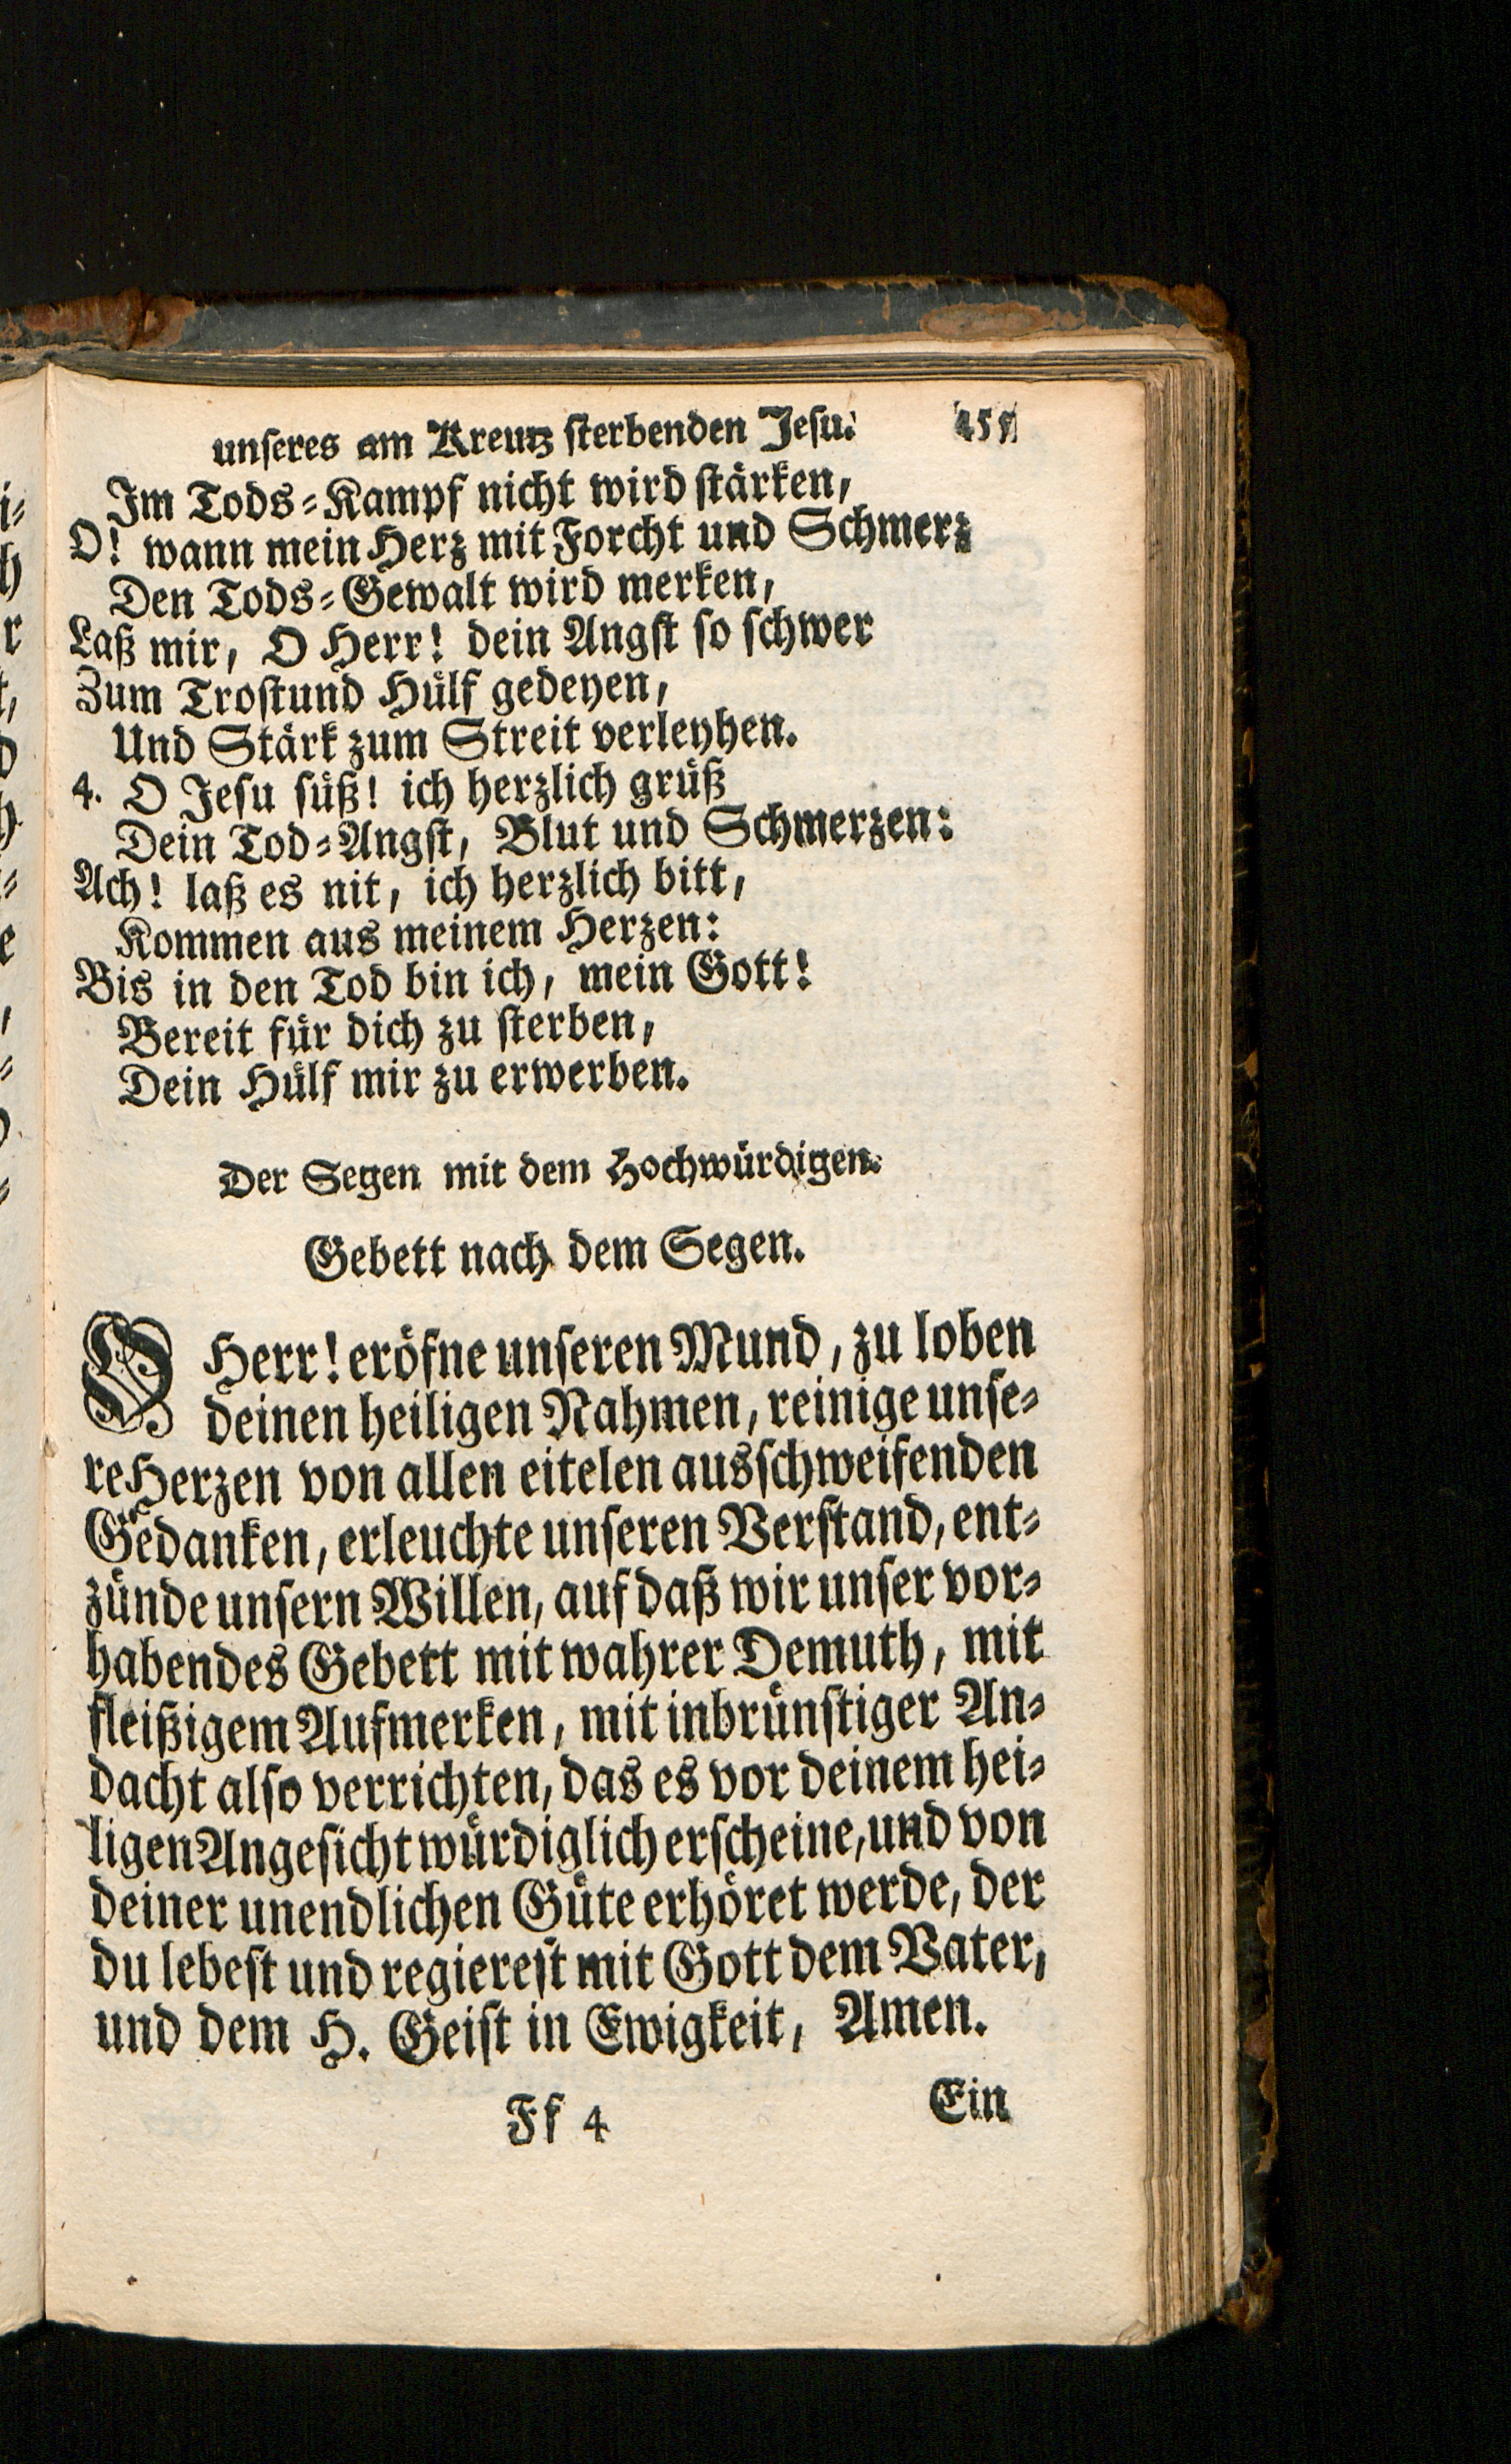 unseres am Kreutz sterbenden Jesu.
Im Tods-Kampf nicht wird stärken,
O! wann mein Herz mit Forcht und Schmerz
Den Tods-Gewalt wird merken,
Laß mir, O Herr! dein Angst so schwer
Zum Trost und Hülf gedeyen,
Und Stärk zum Streit verleyhen.
4. O Jesu süß! ich herzlich grüß
Dein Tod-Angst, Blut und Schmerzen:
Ach! laß es nit, ich herzlich bitt,
Kommen aus meinem Herzen:
Bis in den Tod bin ich, mein Gott!
Bereit für dich zu sterben,
Dein Hülf mir zu erwerben.
Der Segen mit dem Hochwürdigen.
Gebett nach dem Segen.
O Herr! eröfne unseren Mund, zu loben
deinen heiligen Nahmen, reinige unse-
re Herzen von allen eitelen ausschweifenden
Gedanken, erleuchte unseren Verstand, ent-
zünde unsern Willen, auf daß wir unser vor-
habendes Gebett mit wahrer Demuth, mit
fleißigem Aufmerken, mit inbrünstiger An-
dacht also verrichten, das es vor deinem hei-
ligen Angesicht würdiglich erscheine, und von
deiner unendlichen Güte erhöret werde, der
du lebest und regierest mit Gott dem Vater,
und dem H. Geist in Ewigkeit, Amen.
Ff 4
Ein